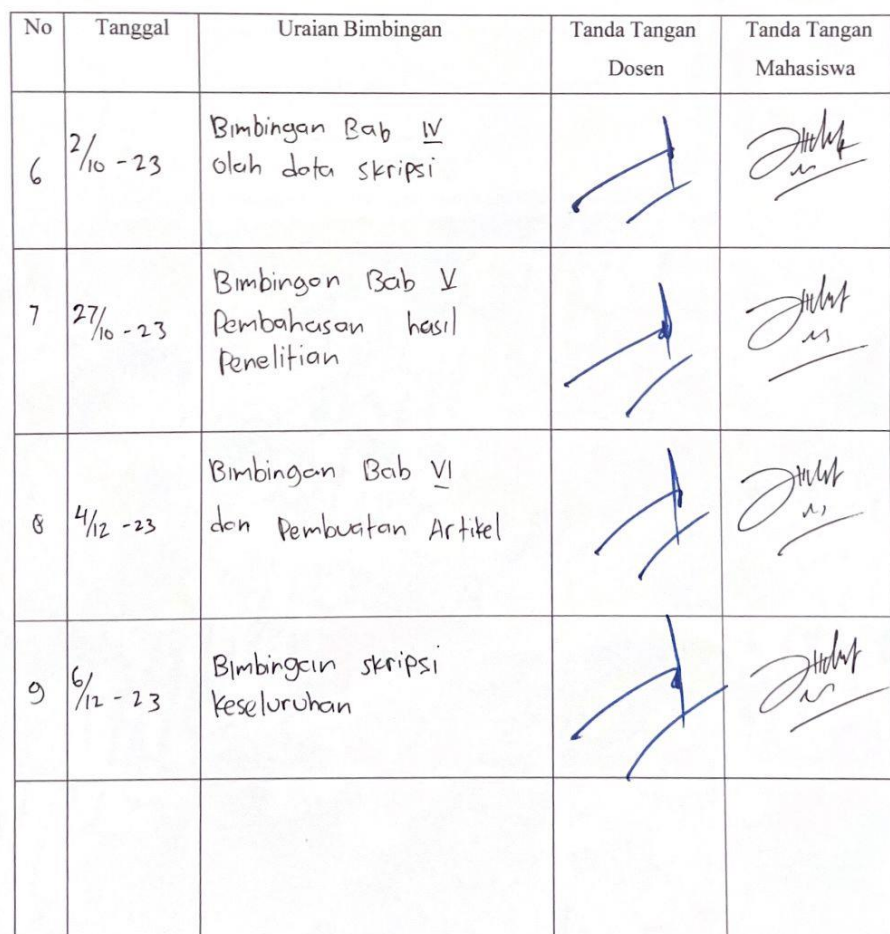 No Tanggal Uraian Bimbingan Tanda Tangan Dosen Tanda Tangan Mahasiswa
6 2/10 - 23 Bimbingan Bab IV
olah data skripsi
7 27/10 - 23 Bimbingan Bab V
Pembahasan hasil
Penelitian
8 4/12 - 23 Bimbingan Bab VI
dan Pembuatan Artikel
9 6/12 - 23 Bimbingan skripsi
keseluruhan